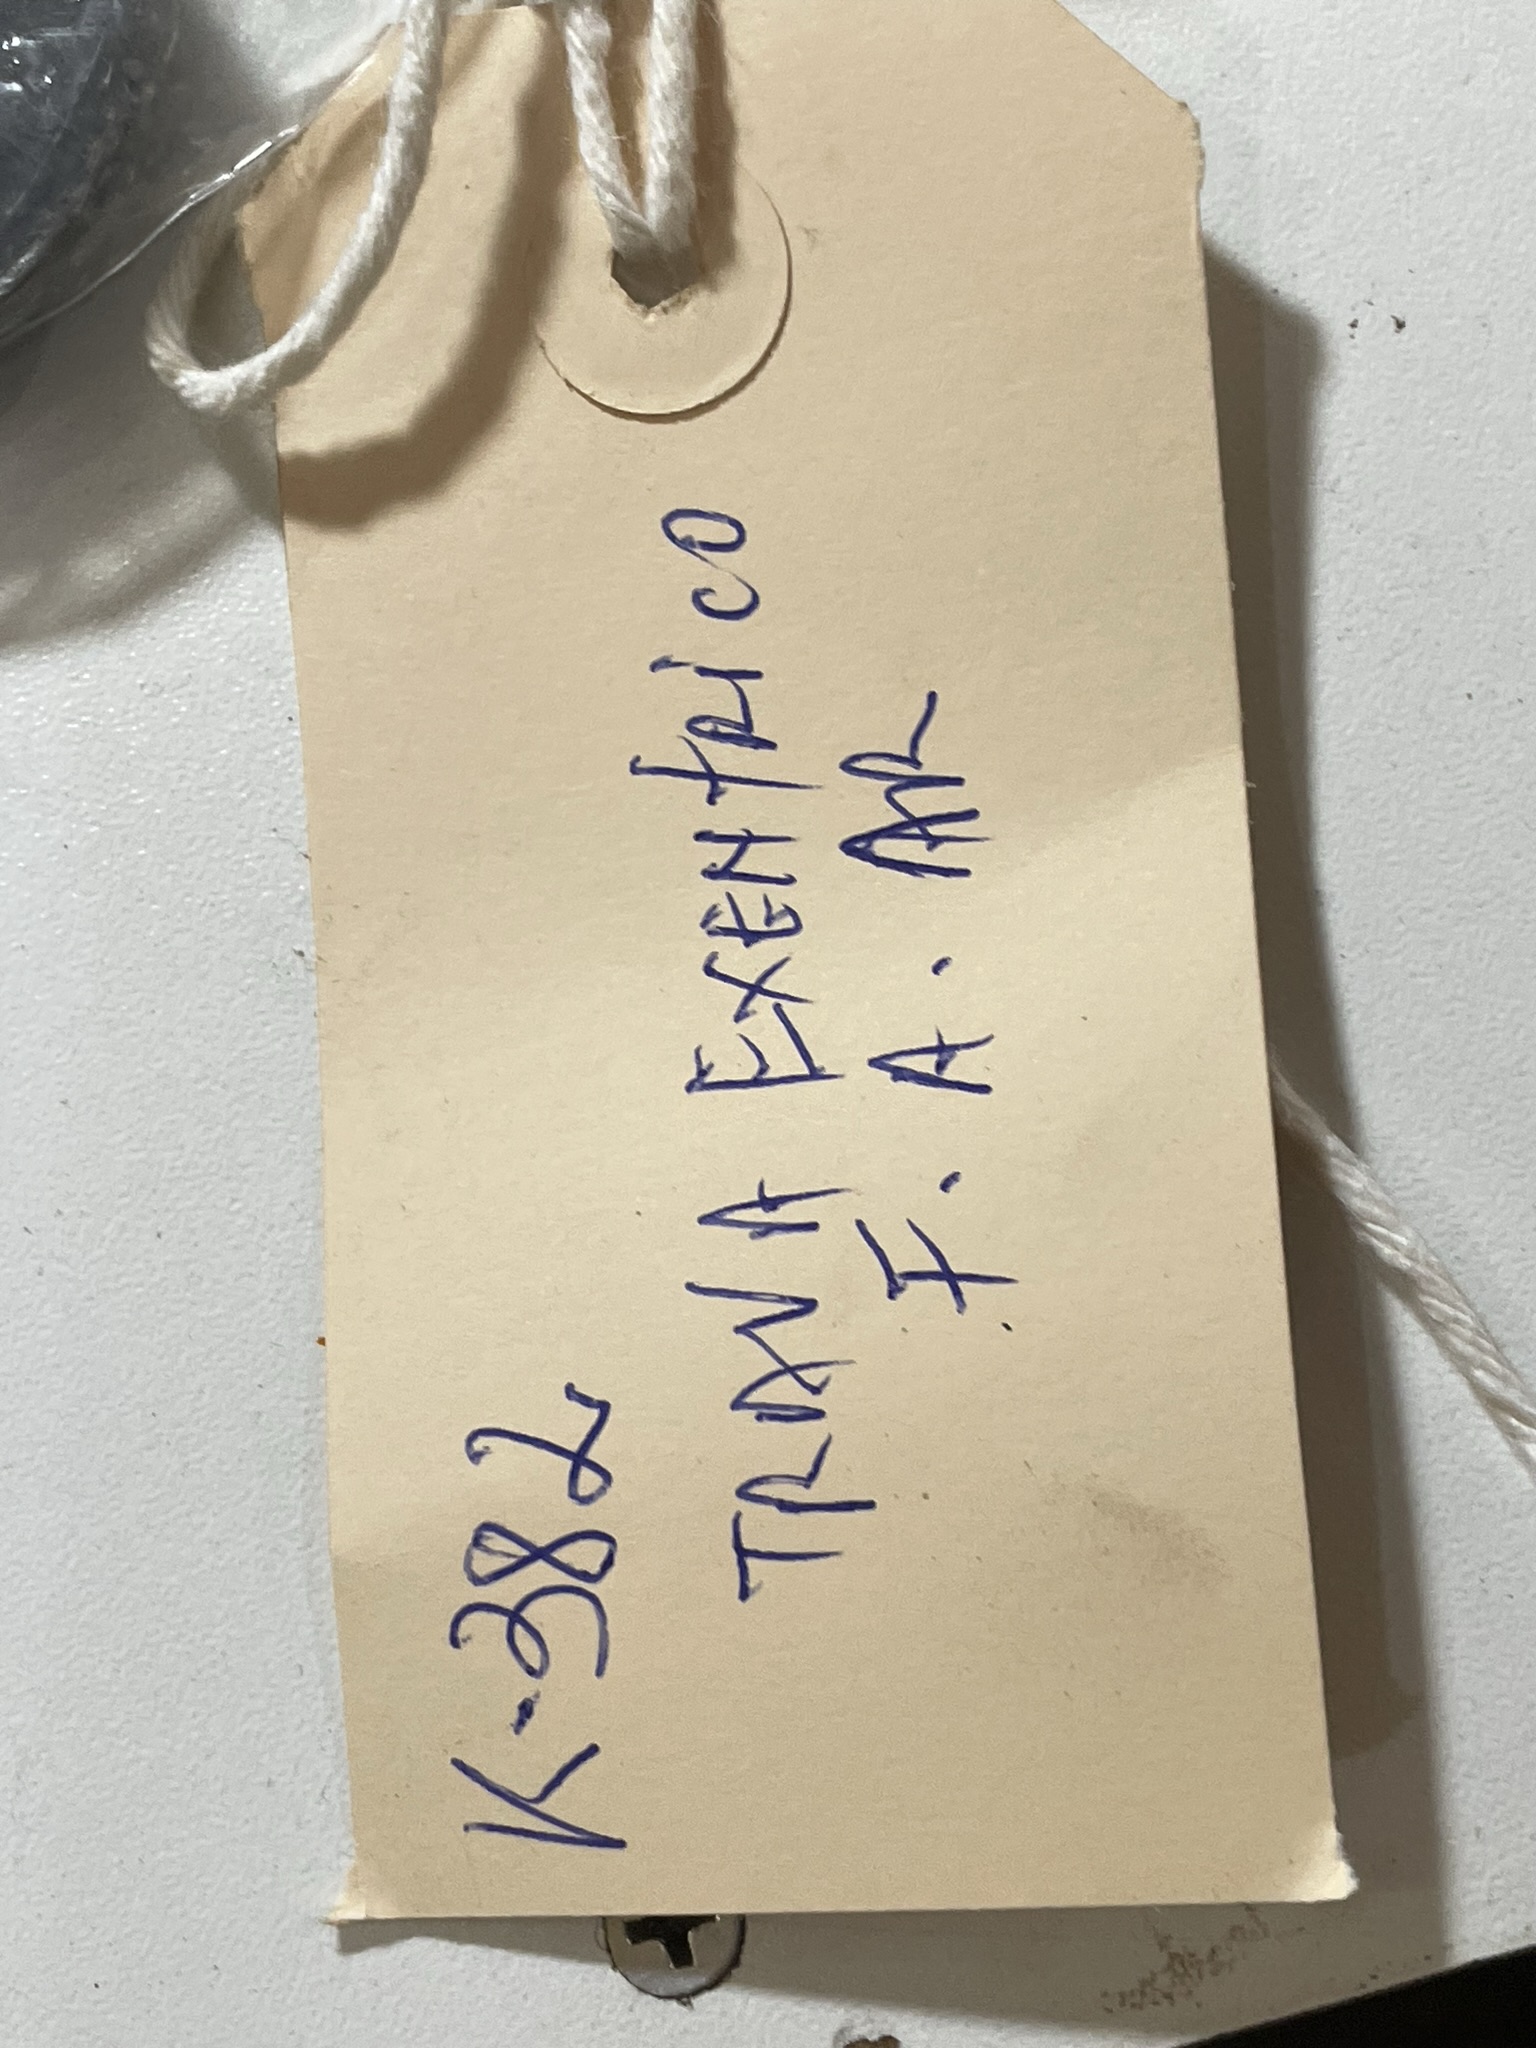 K-382
TRAVA EXENtRiCO
F. A.